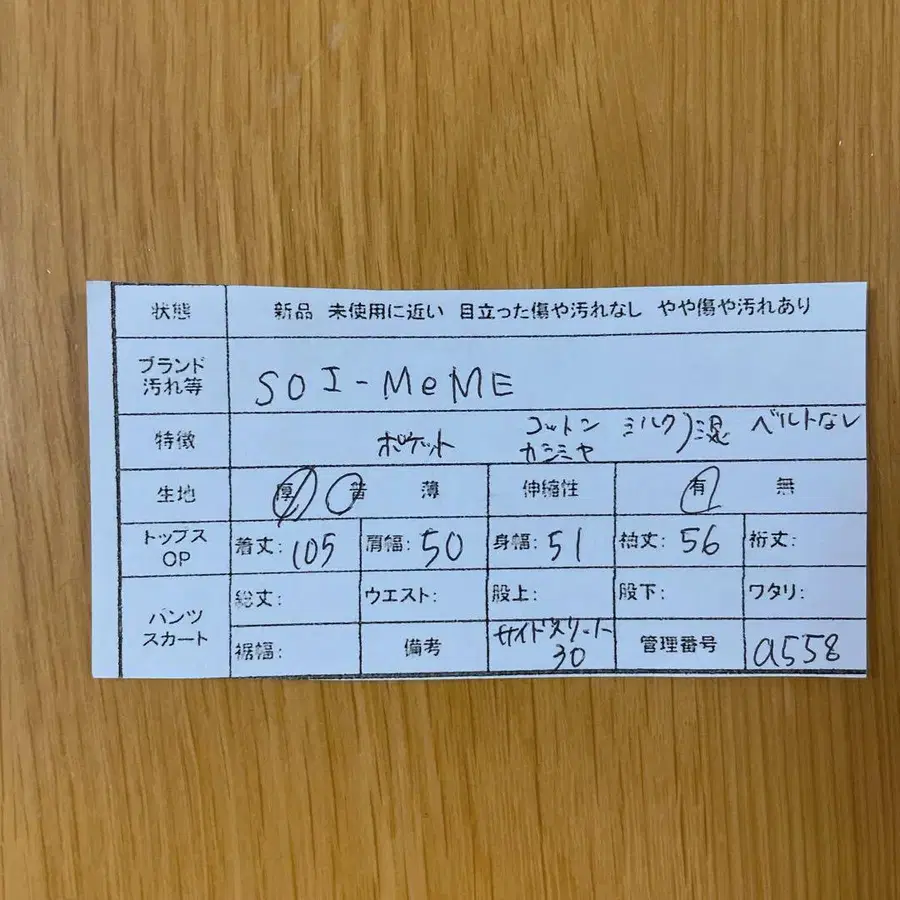 状態 新品 未使用に近い 目立った傷や汚れなし やや傷や汚れあり
ブランド 汚れ等 SOI-MeME
特徴 ポケット コットン カシミヤ ミルク混 ベルトなし
生地 厚 普 薄 伸縮性 有 無
トップス OP 着丈: 105 肩幅: 50 身幅: 51 袖丈: 56 裄丈:
パンツ スカート 総丈: ウエスト: 股上: 股下: ワタリ:
裾幅: 備考 サイドスリット 30 管理番号 a558